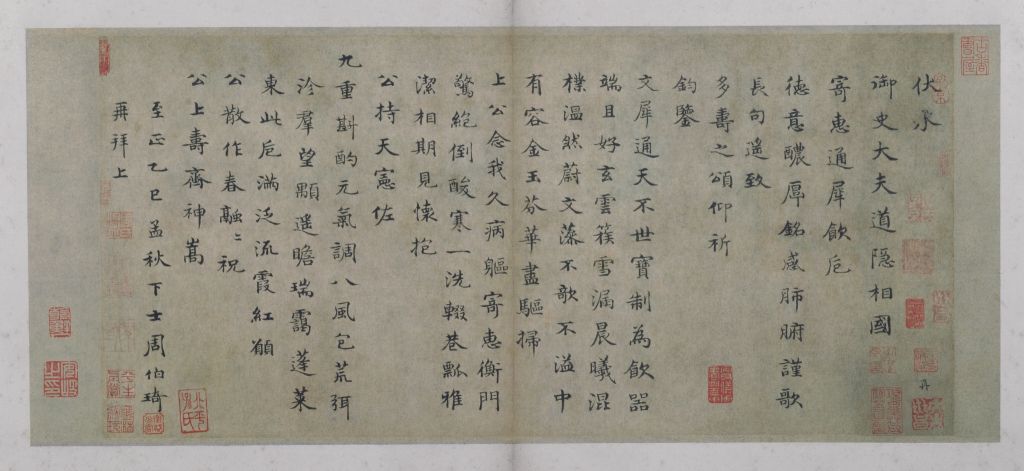 伏承
御史大夫道隱相國
寄惠通犀飲卮
德意醲厚銘感肺腑謹歌
長句遙致
多壽之頌仰祈
鈞鑒
文犀通天不世寶制為飲器
端且好玄雲篆雪漏晨曦混
樸溫然蔚文藻不歌不溢中
有容金玉芬華盡驅掃
上公念我久病軀寄惠衡門
驚絕倒酸寒一洗輟巷瓢雅
潔相期見懷抱
公持天憲佐
九重斟酌元氣調八風包荒弭
沴羣望顒遥瞻瑞靄蓬萊
東此卮滿泛流霞紅願
公散作春融〻祝
公上壽齊神嵩
至正乙巳孟秋下士周伯琦
再拜上